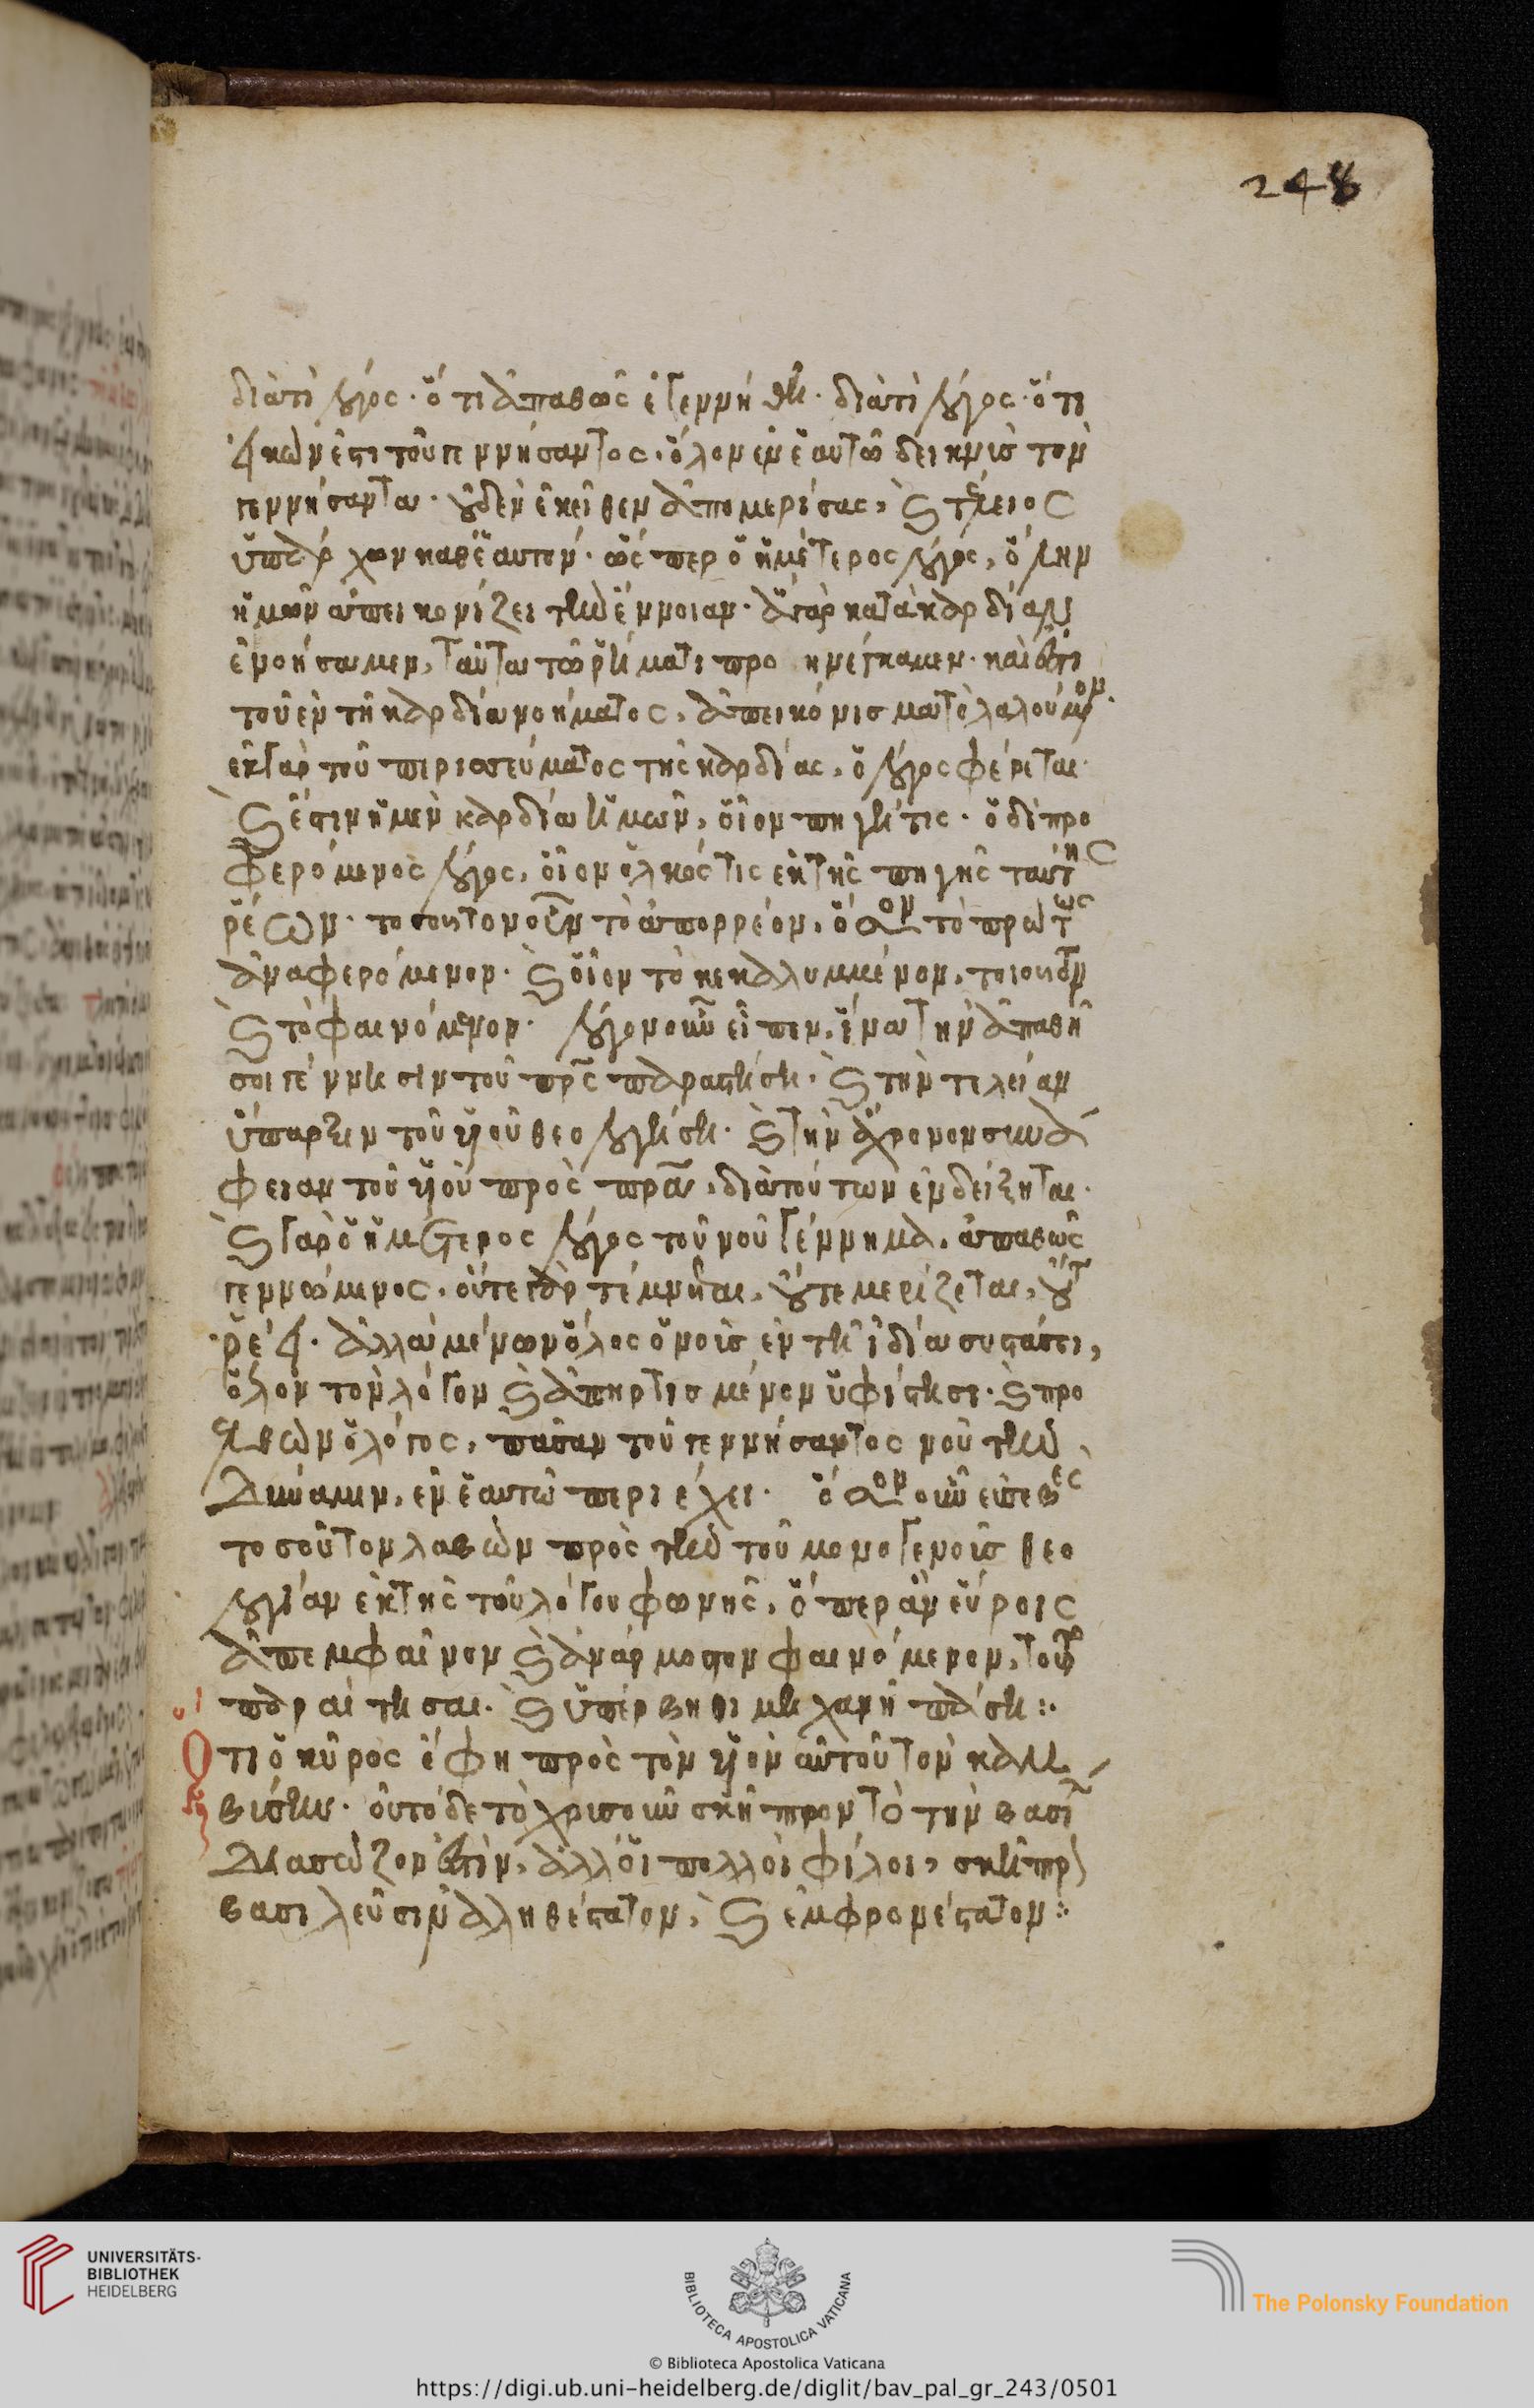 248
διὰτί λόγος· ὅτι ἀπαθῶς ἐγεννήθη· διὰτί λόγος· ὅτι
εἰκών ἐστι τοῦ γεννήσαντος, ὅλον ἐν ἑαυτῷ δεικνὺς τὸν
γεννήσαντα· οὐδὲν ἐκεῖθεν ἀπομερίσας, καὶ τέλειος
ὑπάρχων καθ' ἑαυτόν· ὥσπερ ὁ ἡμέτερος λόγος, ὅλην
ἡμῶν ἀπεικονίζει τὴν ἔννοιαν· ἃ γὰρ κατὰ καρδίαν
ἐνοήσαμεν, ταῦτα τῷ ῥήματι προηνέγκαμεν· καὶ ἔστι
τοῦ ἐν τῇ καρδίᾳ νοήματος, ἀπεικόνισμα τὸ λαλούμενον·
ἐκ γὰρ τοῦ περισσεύματος τῆς καρδίας, ὁ λόγος φέρεται·
καὶ ἔστιν ἡ μὲν καρδία ἡμῶν, οἷον πηγή τις· ὁ δὲ προ
φερόμενος λόγος, οἷον ὁλκός τις ἐκ τῆς πηγῆς ταύτης
ῥέων· τοσοῦτον οὖν τὸ ἀπορρέον, ὅσον τὸ πρώτως
ἀναφερόμενον· καὶ οἷον τὸ κεκαλυμμένον, τοιοῦτον
καὶ τὸ φαινόμενον· λόγον οὖν εἶπεν, ἵνα τὴν ἀπαθῆ
σοι γέννησιν τοῦ πρς παραστήσῃ· καὶ τὴν τελείαν
ὕπαρξιν τοῦ υἱοῦ θεολογήσῃ· καὶ τὴν ἄχρονον συνά
φειαν τοῦ υἱοῦ πρὸς πρα, διὰ τούτων ἐνδείξηται·
καὶ γὰρ ὁ ἡμέτερος λόγος τοῦ νοῦ γέννημα, ἀπαθῶς
γεννώμενος, οὔτε γὰρ τέμνεται, οὔτε μερίζεται, οὔτε
ῥέει· ἀλλὰ μένων ὅλος ὁ νοῦς ἐν τῇ ἰδίᾳ συστάσει,
ὅλον τὸν λόγον καὶ ἀπηρτισμένον ὑφίστησι· καὶ προ
ελθὼν ὁ λόγος, πᾶσαν τοῦ γεννήσαντος νοῦ τὴν
δύναμιν, ἐν ἑαυτῷ περιέχει· ὅσον οὖν εὐσεβὲς
τοσοῦτον λαβὼν πρὸς τὴν τοῦ μονογενοῦς θεο
λογίαν ἐκ τῆς τοῦ λόγου φωνῆς, ὅπερ ἂν εὕροις
ἀπεμφαῖνον καὶ ἀνάρμοστον φαινόμενον, τοῦτο
παραίτησαι· καὶ ὑπέρβηθι μηχανῇ πάσῃ:·
Ὅτι ὁ κῦρος ἔφη πρὸς τὸν υἱὸν αὐτοῦ τὸν καμ
βύσην· οὐ τόδε τὸ χρυσοῦν σκῆπτρον τὸ τὴν βασιλείαν
διασῶζον ἐστίν, ἀλλ' οἱ πολλοὶ φίλοι, σκῆπτρον
βασιλεῦσιν ἀληθέστατον, καὶ ἐμφρονέστατον:·
UNIVERSITÄTS-
BIBLIOTHEK
HEIDELBERG
BIBLIOTECA APOSTOLICA VATICANA
The Polonsky Foundation
© Biblioteca Apostolica Vaticana
https://digi.ub.uni-heidelberg.de/diglit/bav_pal_gr_243/0501